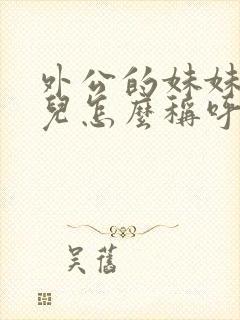 外公的妹妹
兒怎麼稱呼
吴舊